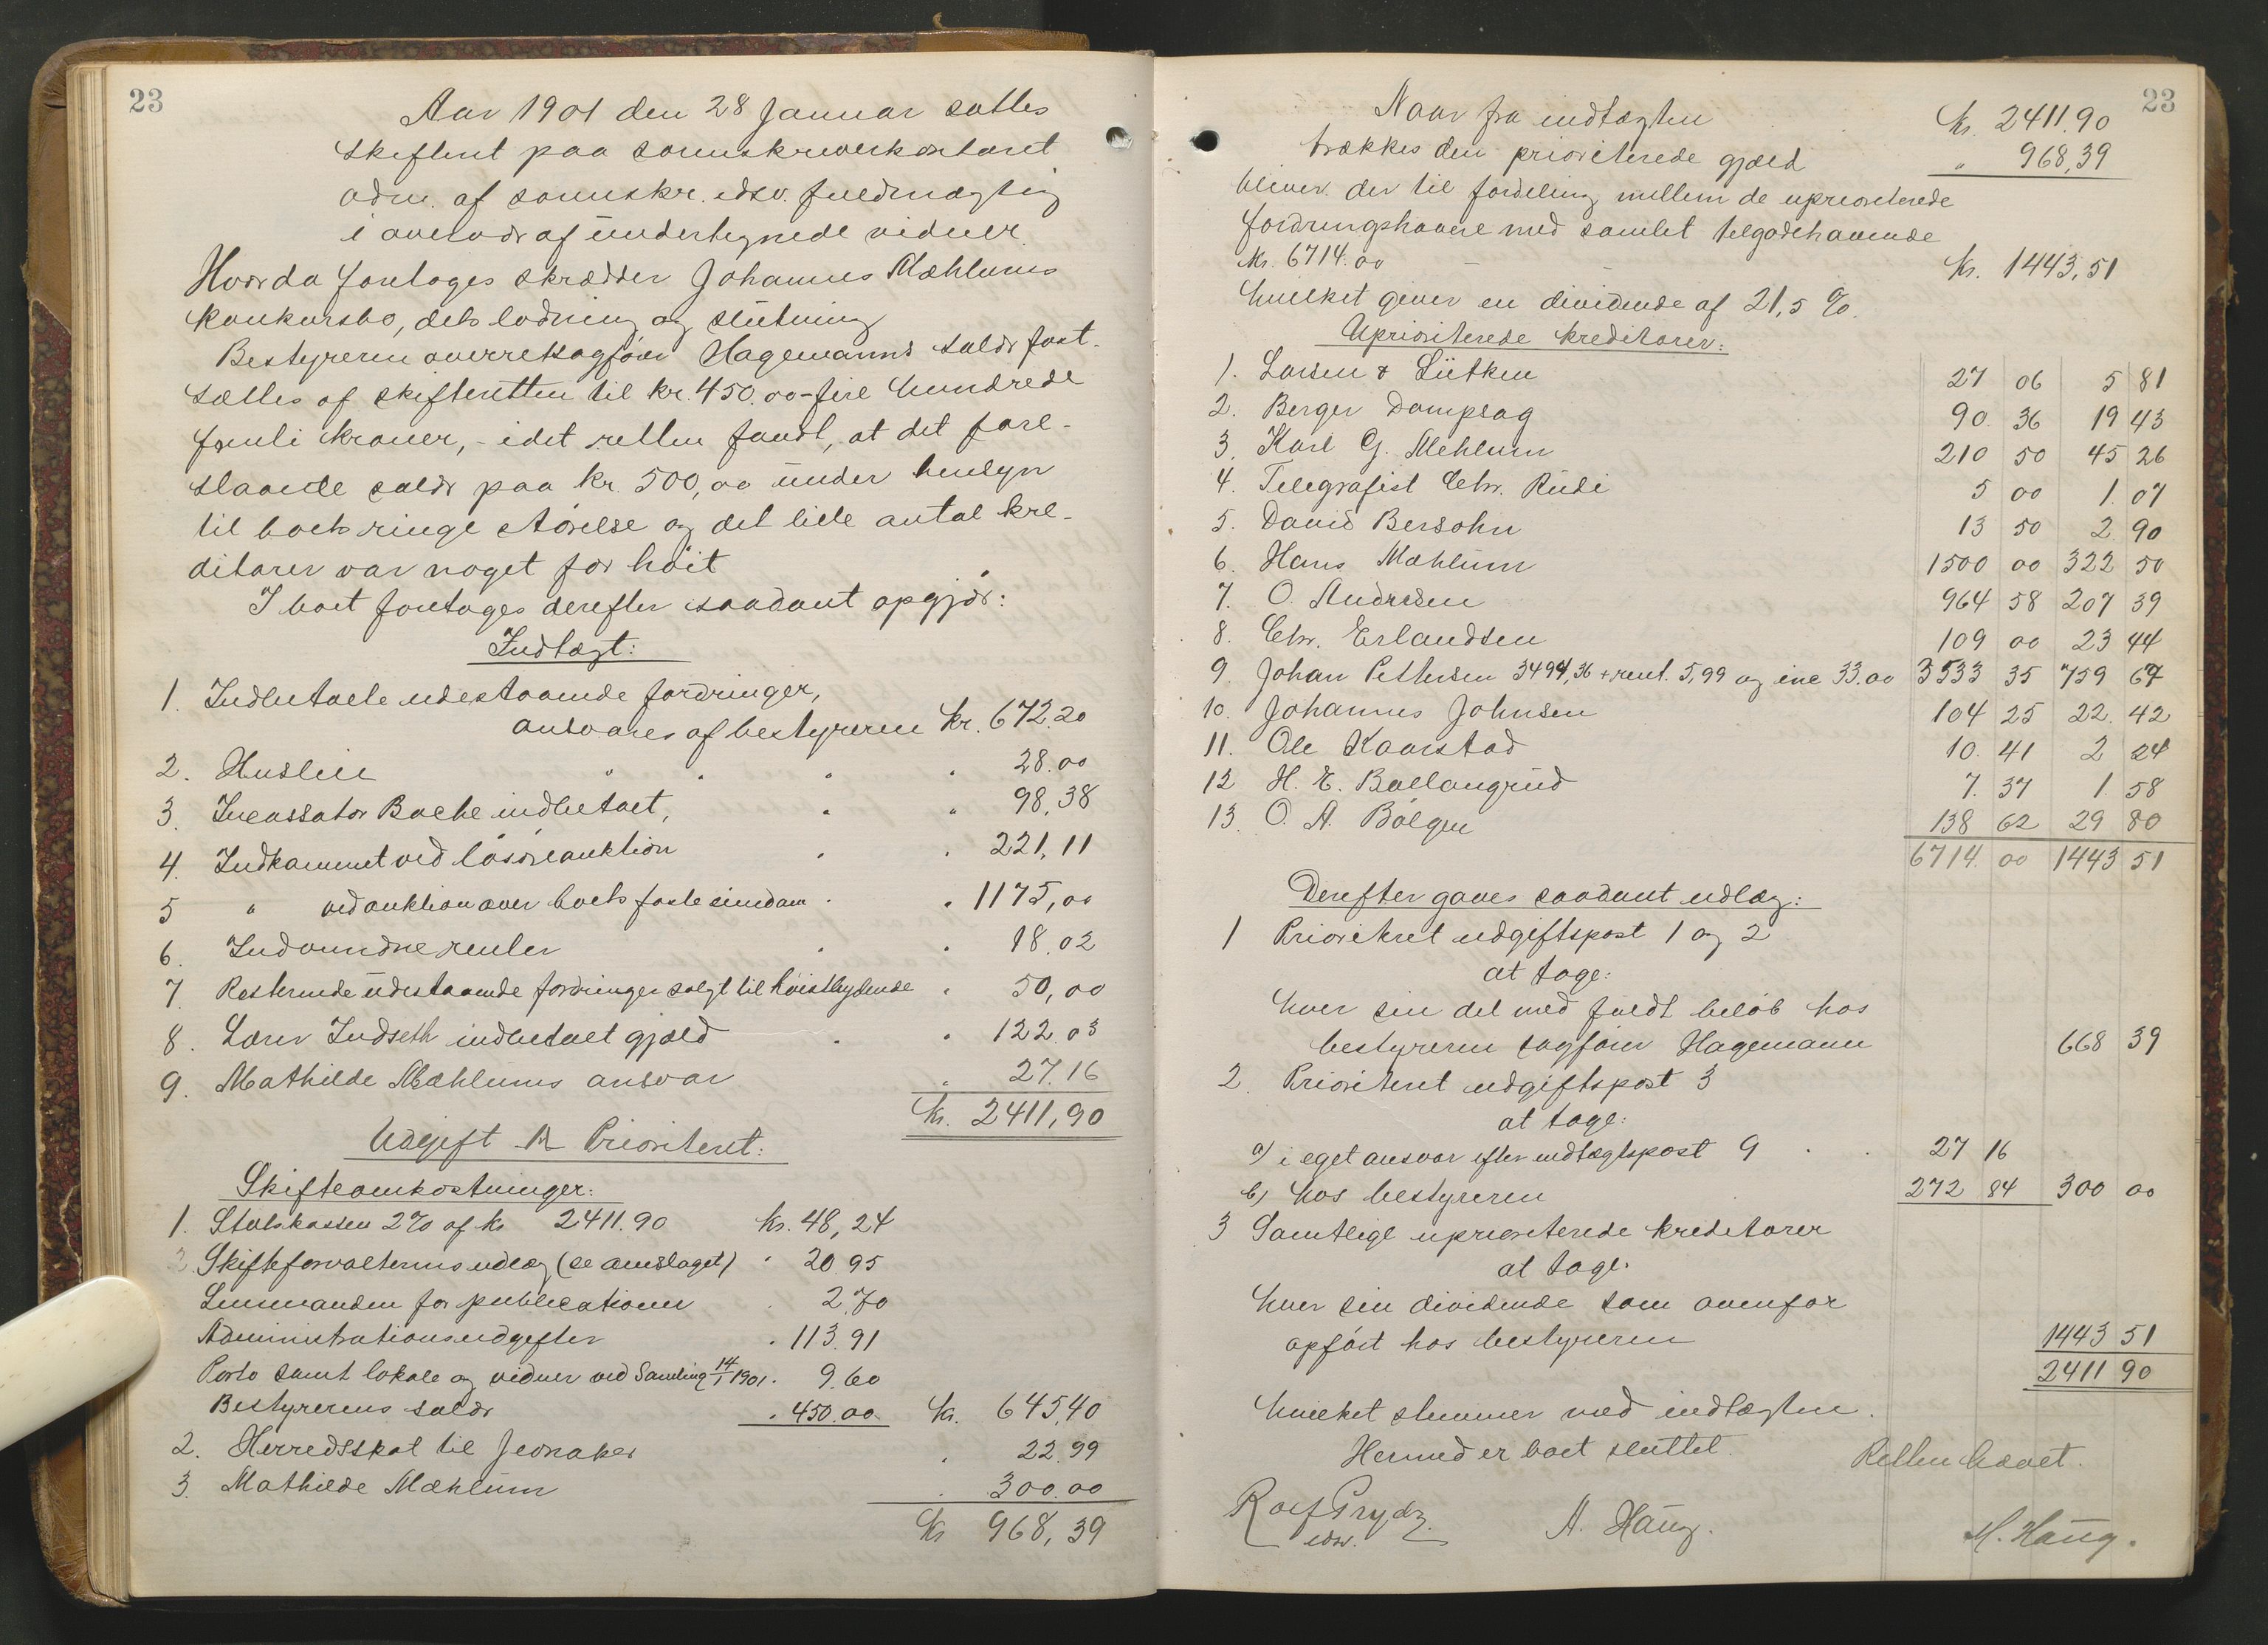 23
Aar 1901 den 28 Januar sattes
skifteret paa sorenskriverkontoret
adm. af sorenskr. edsv. fuldmægtig
i overvær af undertegnede vidner.
Hvorda foretoges skrædder Johannes Mæhlums
konkursbo, dets lodning og slutning
Bestyreren overretssagfører Hagemanns salær fast-
sættes af skifteretten til kr. 450.00 - fire hundrede
femti kroner, - idet retten fandt, at det fore-
slaaede salær paa kr. 500,00 under hensyn
til boets ringe størelse og det lille antal kre-
ditorer var noget for høit
I boet foretoges derefter saadant opgjør:
Indtægt:
1. Indbetalte udestaaende fordringer,
ansvares af bestyreren kr. 672.20
2. Husleie " " " " 28.00
3. Incassator Bache indbetalt, " " 98,38
4. Indkommet ved løsøreauktion " " 221,11
5 " ved auktion over boets faste eiendom " " 1175,00
6. Indvundne renter " " 18.02
7 Resterende udestaaende fordringer solgt til høistbydende " 50,00
8. Lærer Indseth indbetalt gjæld " " 122.03
9. Mathilde Mæhlums ansvar " 27.16
Kr. 2411,90
Udgift Prioriteret:
Skifteomkostninger:
1. Statskassen 2% af kr 2411.90 Kr. 48,24
Skifteforvalterens udlæg (se omslaget) " 20.95
Lensmanden for publicationer " 2,70
Administrationsudgifter " 113.91
Porto samt lokale og vidner ved Samling 14/1 1901. 9.60
Bestyrerens salær " 450.00 Kr. 645,40
2. Herredsskat til Jevnaker " 22.99
3. Mathilde Mæhlum " 300.00
Kr 968,39
23
Naar fra indtægten Kr. 2411.90
trækkes den prioriterede gjæld " 968,39
bliver der til fordeling mellem de uprioriterede
fordringshavere med samlet tilgodehavende
kr. 6714.00 - - Kr. 1443,51
hvilket giver en dividende af 21,5 %.
Uprioriterede kreditorer:
1. Larsen & Lütken 27 06 5 81
2. Berger Dampsag 90. 36 19 43
3. Karl G. Mehlum 210 50 45 26
4. Telegrafist Chr. Rudi 5 00 1. 07
5. David Bersohn 13 50 2. 90
6. Hans Mæhlum 1500 00 322 50
7. O. Andresen 964 58 207 39
8. Chr. Erlandsen 109 00 23 44
9. Johan Pettersen 3494,36 + rent. 5,99 og inc 33.00 3533 35 759 67
10. Johannes Johnsen 104 25 22. 42
11. Ole Kaarstad 10. 41 2 24
12 H. E. Ballangrud 7. 37 1. 58
13. O. A. Bølgen 138 62 29 80
6714. 00 1443 51
Derefter gaves saadant udlæg:
1 Prioriteret udgiftspost 1 og 2
at tage:
hver sin del med fuldt beløb hos
bestyreren sagfører Hagemann 668 39
2. Prioriteret udgiftspost 3
at tage:
a) i eget ansvar efter indtægtspost 9 . . 27 16
b) hos bestyreren 272 84 300 00
3 Samtlige uprioriterede kreditorer
at tage:
hver sin dividende som ovenfor
opført hos bestyreren 1443 51
2411 90
hvilket stemmer med indtægten.
Hermed er boet sluttet. Retten hævet.
Rolf Prydz A. Haug. M. Haug.
edsv.